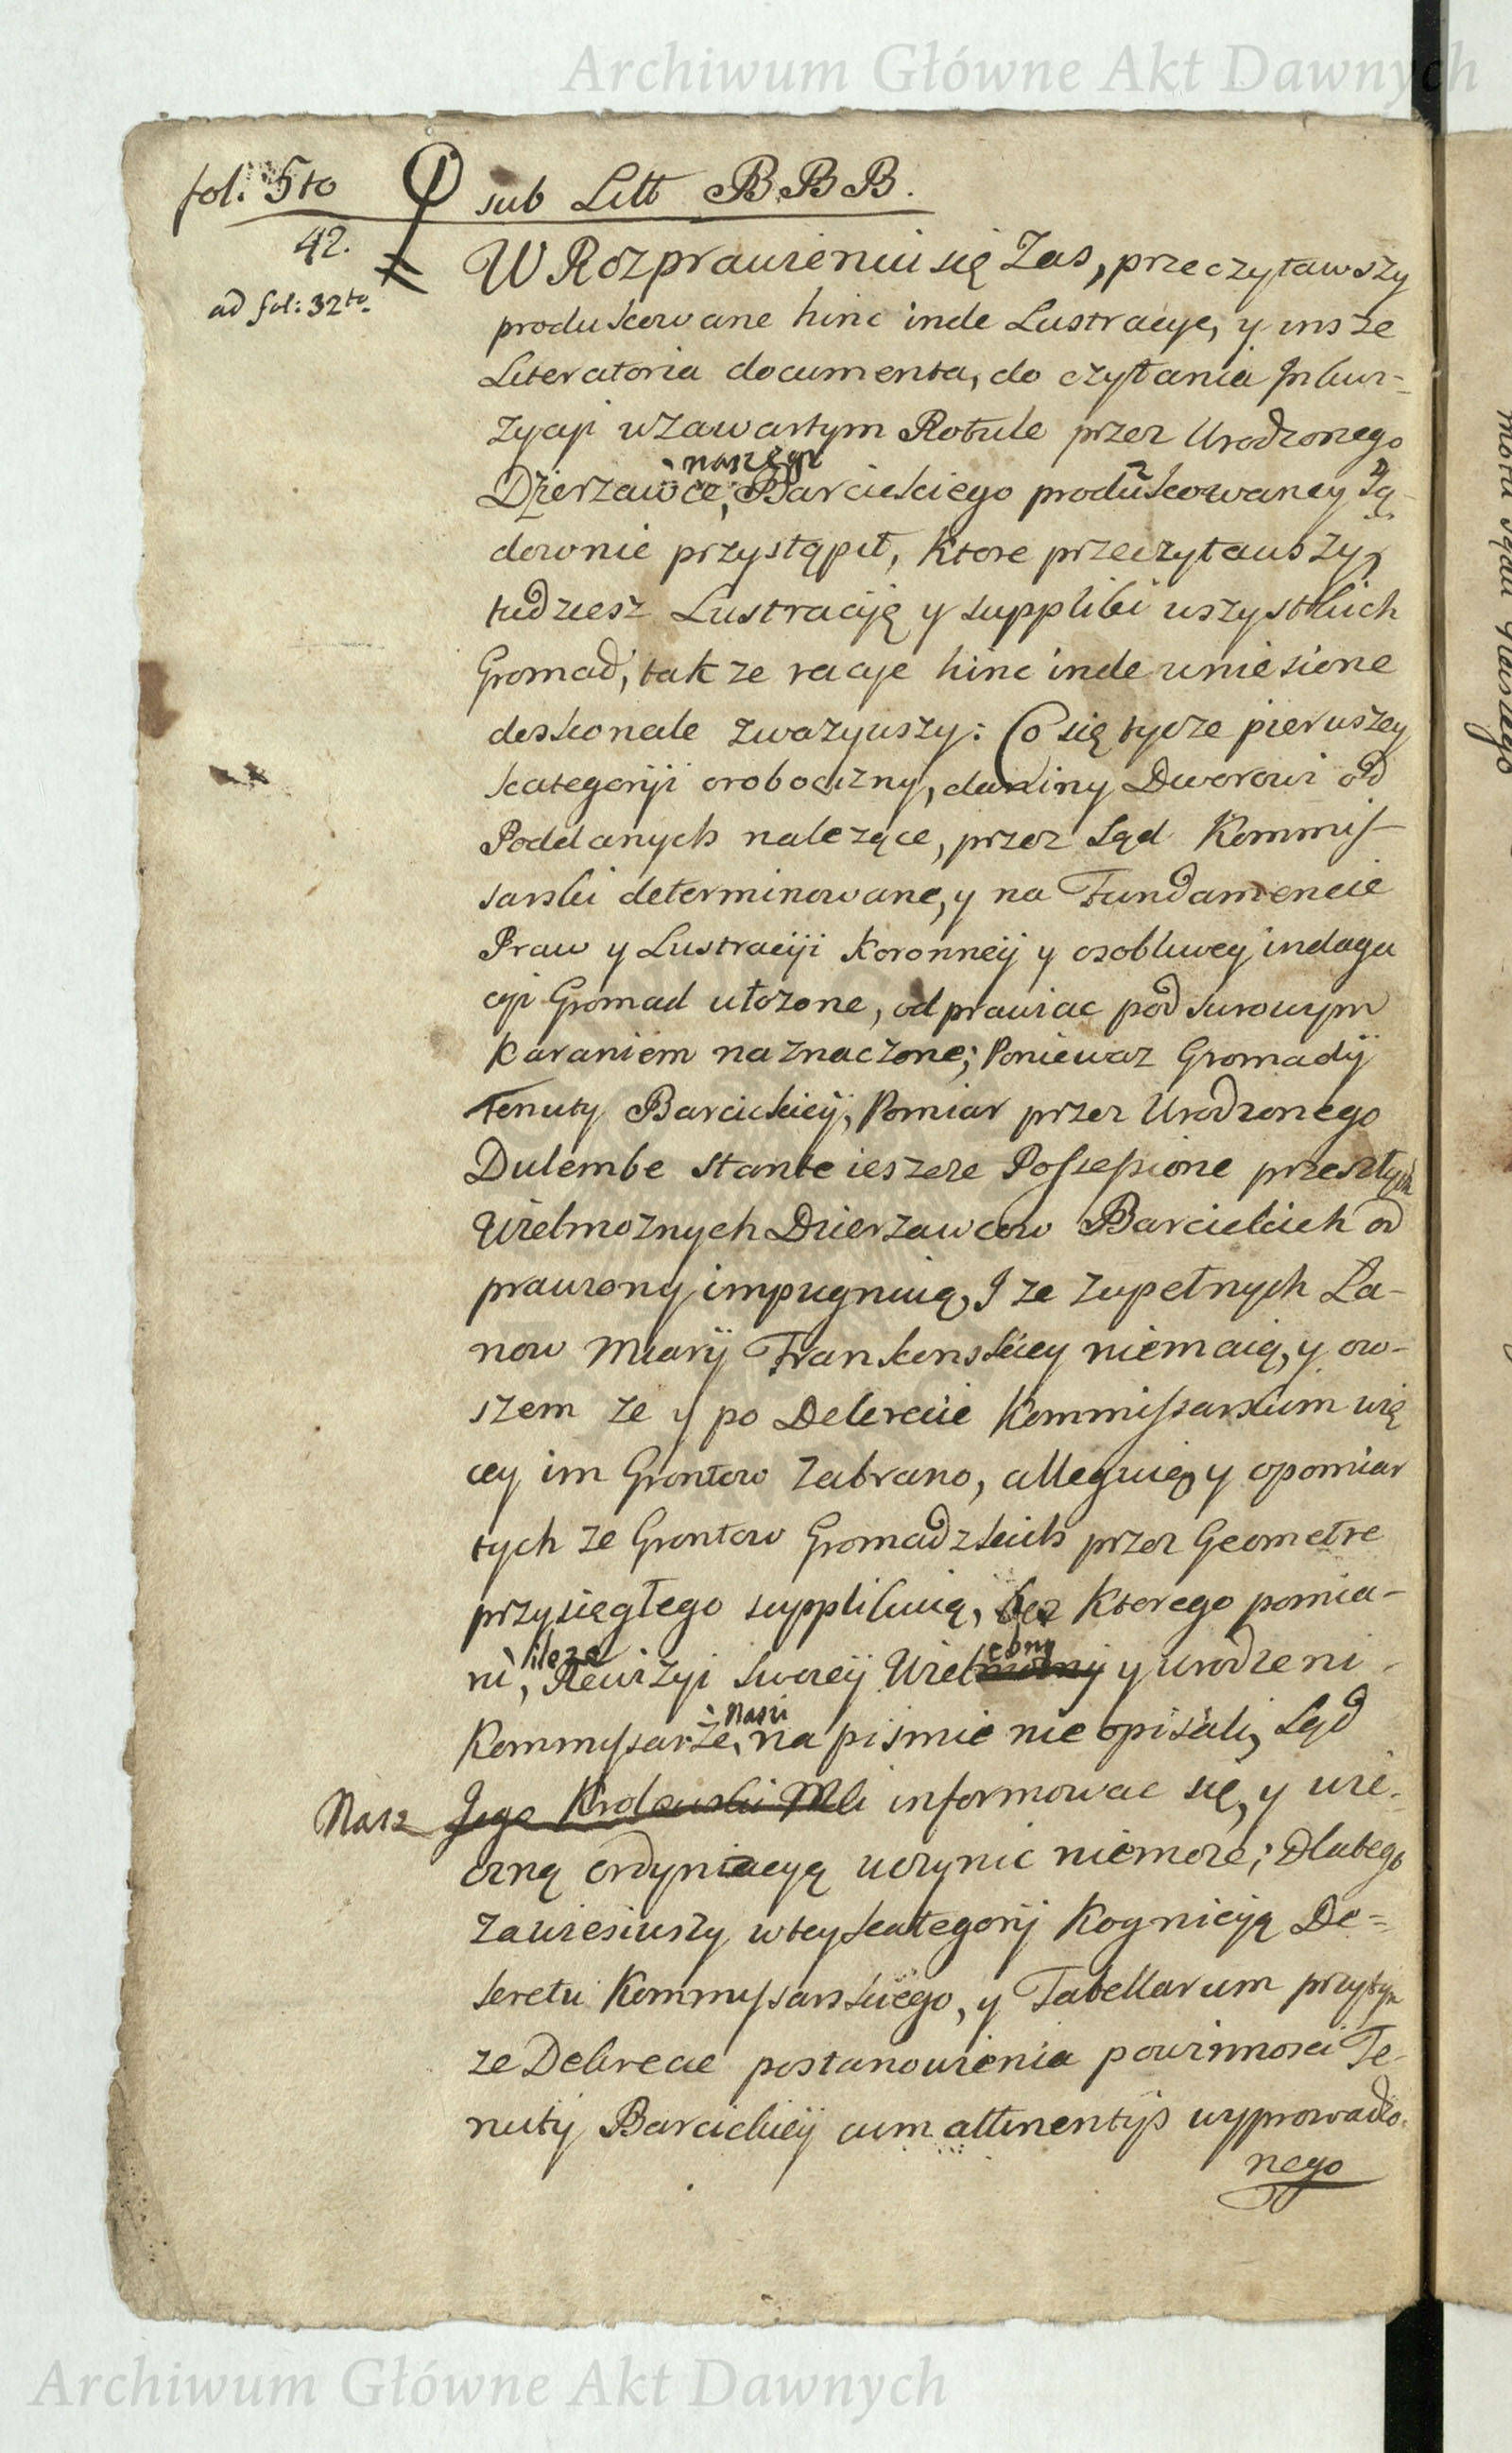 Archiwum Główne Akt Dawnych
fol: 5to
sub Litt BBB.
42.
ad fol: 32to
W Rozprawieniu się Zas, przeczytawszy
produkowane hinc inde Lustracye, y insze
Literatoria documenta, do czytania Inkwi-
zycyi w zawartym Rotule przez Urodzonego
naszego
Dzierzawce, Barcickiego produkowaney Są-
downie przystąpił, ktore przeczytawszy,
tudziesz Lustracyję y suppliki wszystkich
Gromad, tak ze racye hinc inde wniesione
doskonale zwazywszy: Co się tycze pierwszey
kategoryi o robocizny, daniny Dworowi od
Poddanych nalezące, przez Sąd Kommis-
sarski determinowane, y na Fundamencie
Praw y Lustracyji Koronneij y osobliwey indaga
cyi Gromad ułozone, odprawiac pod surowym
karaniem naznaczone; Poniewaz Gromadij
Tenuty Barcickieij, Pomiar przez Urodzonego
Dulembe stante ieszcze Possessione przeszłych
Wielmoznych Dzierzawcow Barcickich od
prawiony impugnuią, I ze zupełnych Ła-
now Miarij Frankonskiey niemaią, y ow-
szem ze y po Dekrecie Kommissarskim wię
cey im Grontow zabrano, alleguią y o pomiar
tych ze Grontow Gromadzkich przez Geometre
przysięgłego supplikuią, bez ktorego pomia-
ru, Rewizyi swoieij Wielmozny y urodzeni
ileze
Nasi
Kommissarze, na pismie nie opisali, Sąd
Nasz Jego Krolewski Mci informowac się, y wie-
czną ordynacyą uczynic niemoze; Dlatego
zawiesiwszy w tey kategorij Kognicyją De=
kretu Kommissarskiego, y Tabellarum przytym
ze Dekrecie postanowienia powinnosci Te-
nuty Barcickieij cum attinentijs wyprowadzo-
nego
Archiwum Główne Akt Dawnych